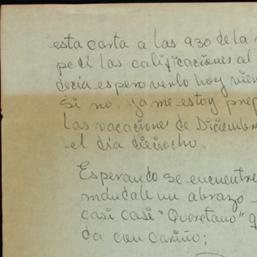 esta carta a las 930 de la
pedí las calificaciones al
decia espero verlo hoy
si no, ya me estoy
las vacaciones de Diciembre
el día dieciocho.
Esperando se encuentre
mándale un abrazo
casi casi "Queretano"
da con cariño;